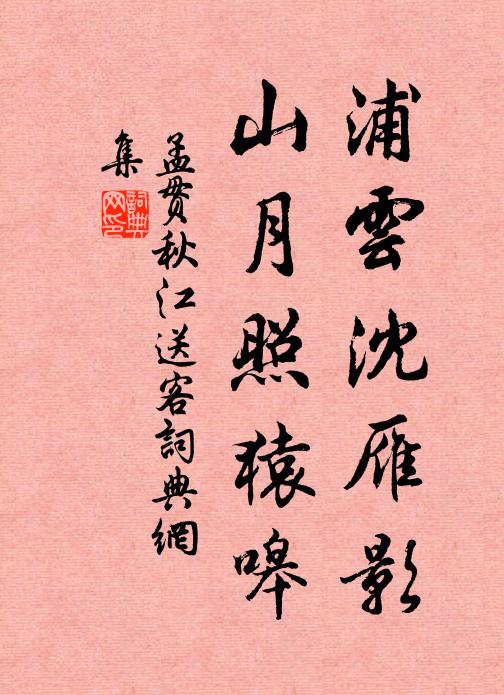 浦雲沈雁影
山月照猿嘷
孟贯秋江送客詞典網
集
詞典
网印